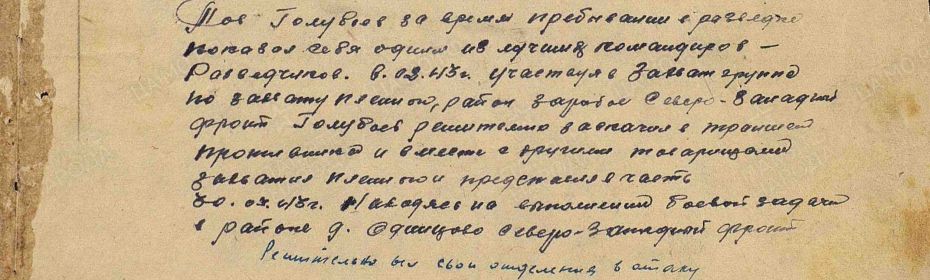 Тов Голубев за время пребывания в разведке
показал себя одним из лучших командиров –
Разведчиков. в 02.43г. участвуя в Захватгруппе
по захвату пленного, район Северо-Западный
фронт Голубев решительно в траншею
противника и вместе с другими товарищами
захватил пленного и в часть
30.02.43г. Находясь на выполнении боевой задачи
в районе д. Одинцово Северо-Западный фронт
Решительно вел свои отделения в атаку